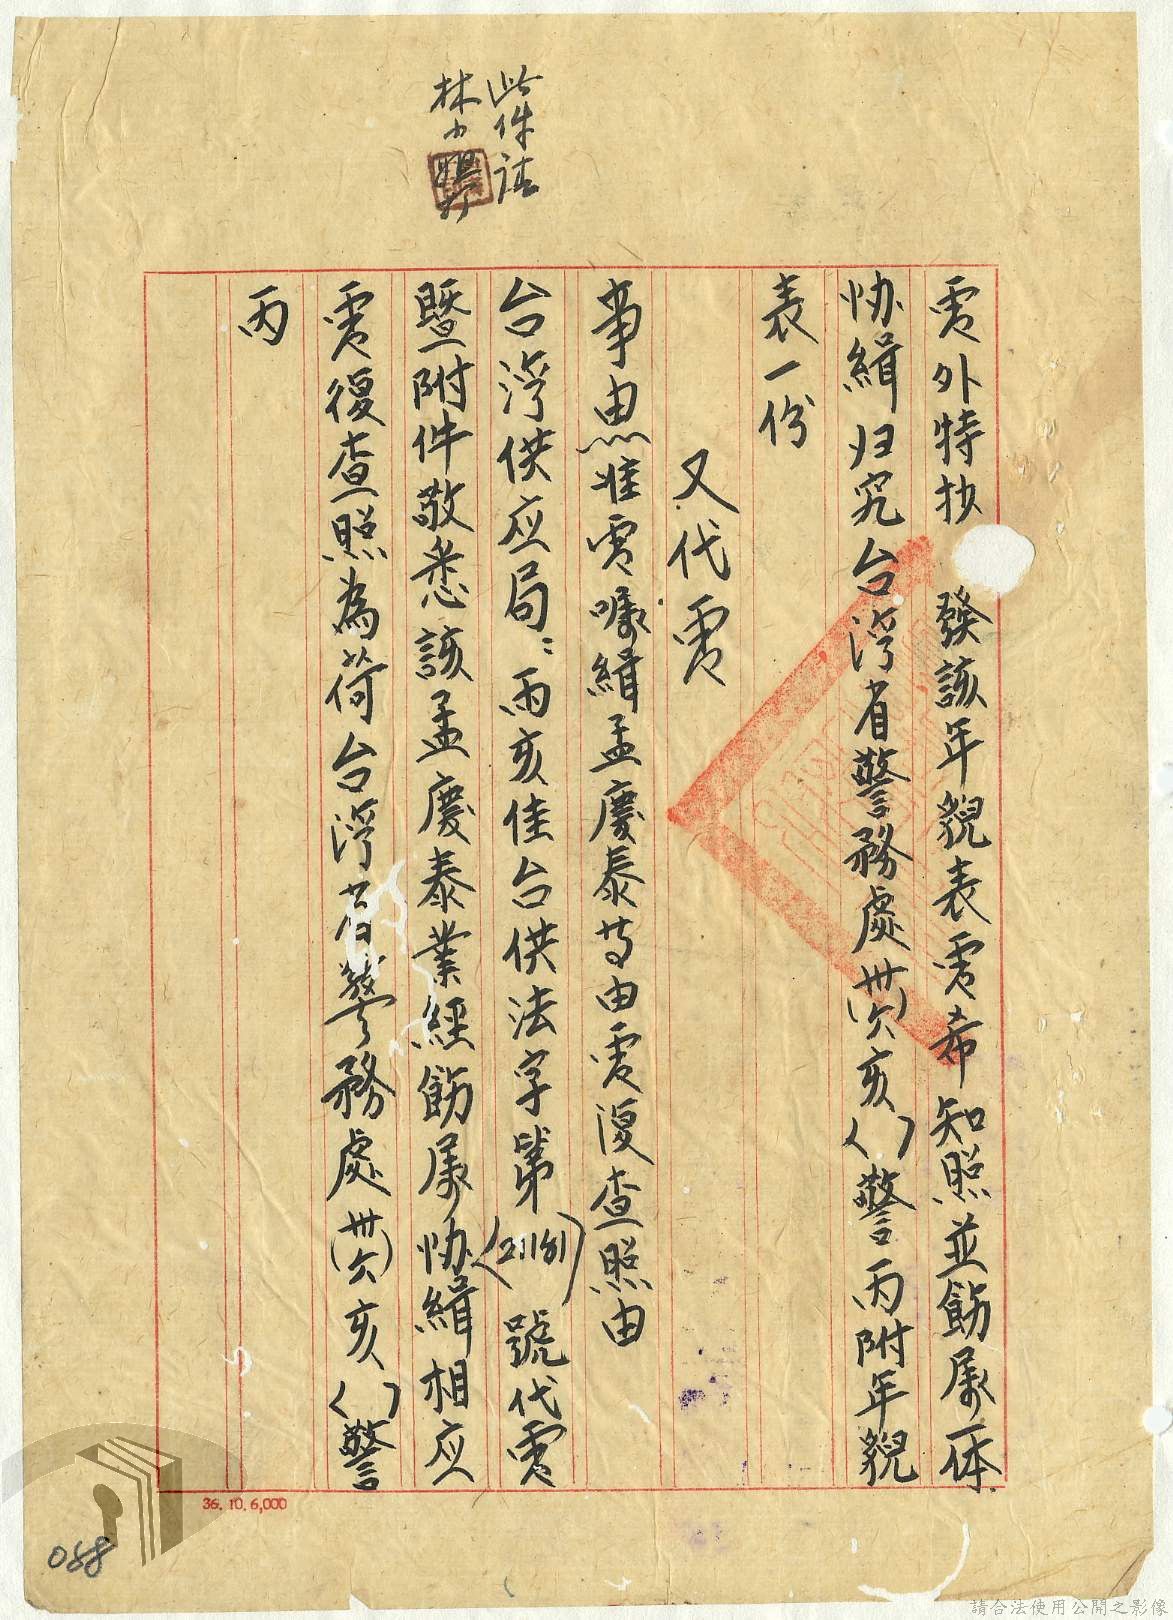 此件請
林小
電外特抄發該年貌表電希知照並飭屬一体
协緝归究台湾省警務處卅六亥（　）警丙附年貌
表一份
又代電
事由為准電囑緝孟慶泰等由電復查照由
台湾供应局：丙亥佳台供法字第（21181）號代電
暨附件敬悉該孟慶泰業經飭屬协緝相应
電復查照為荷台湾省警務處卅六亥（　）警
丙
36.10.6,000
088
請合法使用公開之影像